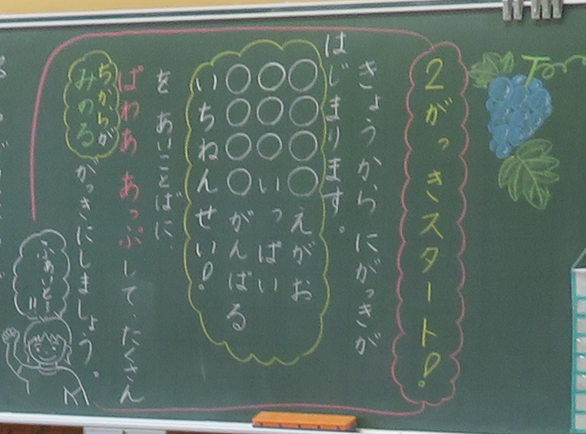 ２がっきスタート！
きょうから にがっきが
はじまります。
○○○○えがお
○○○いっぱい
○○○○がんばる
いちねんせい！
を あいことばに、
ぱわあ あっぷして、たくさん
ちからが
みのる がっきにしましょう。
ふぁいとー!!